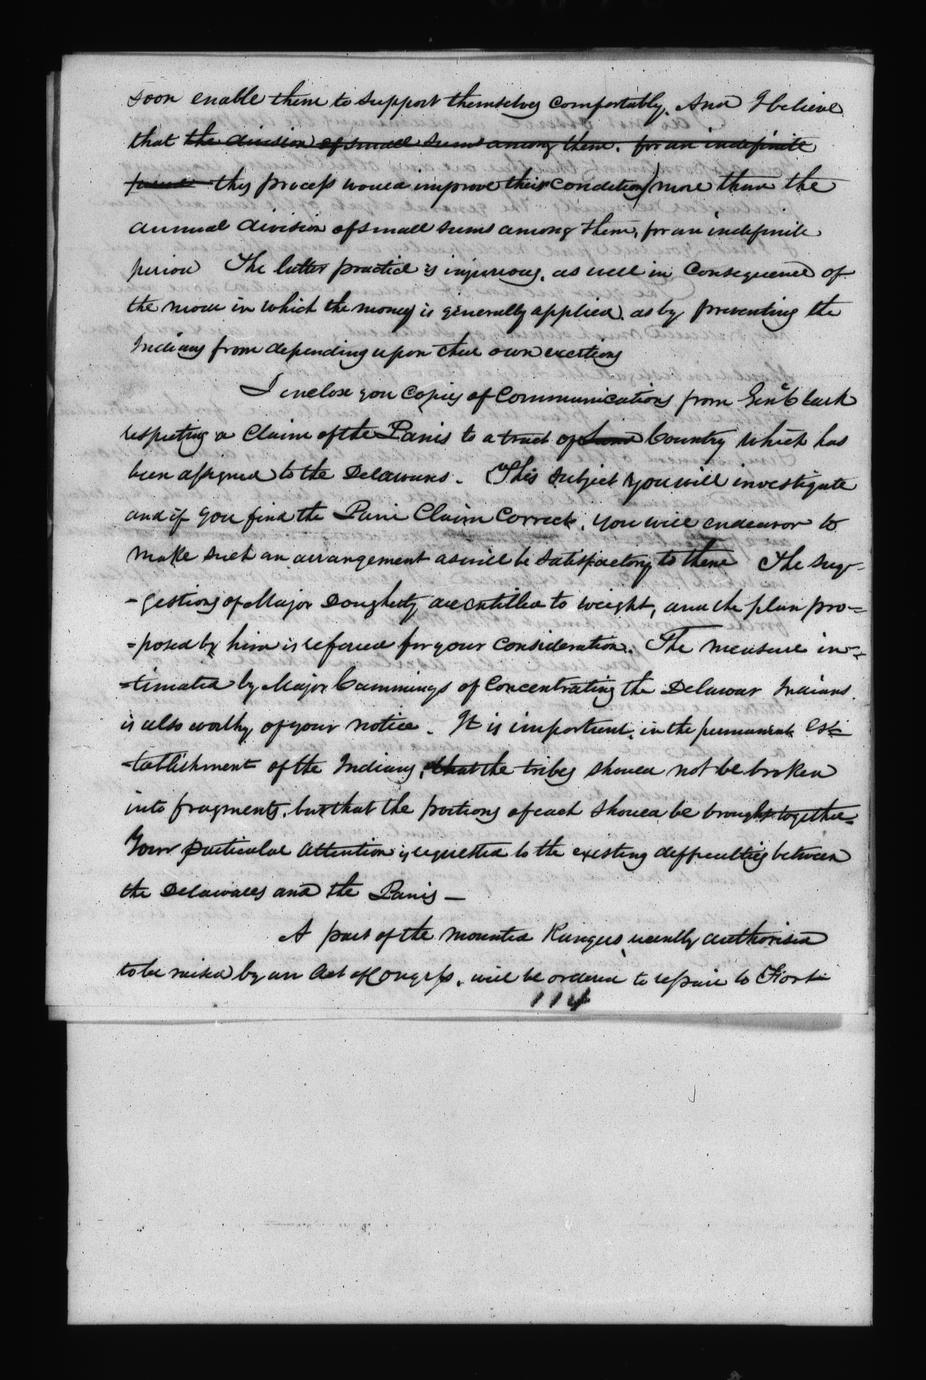 soon enable them to support themselves comfortably. And I believe
that the division of small sums among them, for an indefinite
period this process would improve their condition more than the
annual division of small sums among them, for an indefinite
period The latter practice is injurious, as well in consequence of
the mode in which the money is generally applied, as by preventing the
Indians from depending upon their own exertions
I enclose you Copies of Communications from Genl Clark
respecting a Claim of the Panis to a tract of Land Country which has
been assigned to the Delawares. This subject you will investigate
and if you find the Pani Claim Correct, you will endeavor to
make such an arrangement as will be satisfactory to them The sug-
-gestions of Major Dougherty are entitled to weight, and the plan pro=
=posed by him is referred for your consideration. The measure in=
=timated by Major Cummings of Concentrating the Delaware Indians.
is also worthy of your notice. It is important, in the permanent es=
=tablishment of the Indians, that the tribes should not be broken
into fragments, but that the portions of each should be brought together=
Your particular attention is requested to the existing difficulties between
the Delawares and the Panis —
A part of the mounted Rangers, recently authorised
to be raised by an Act of Congress, will be ordered to repair to Fort
114